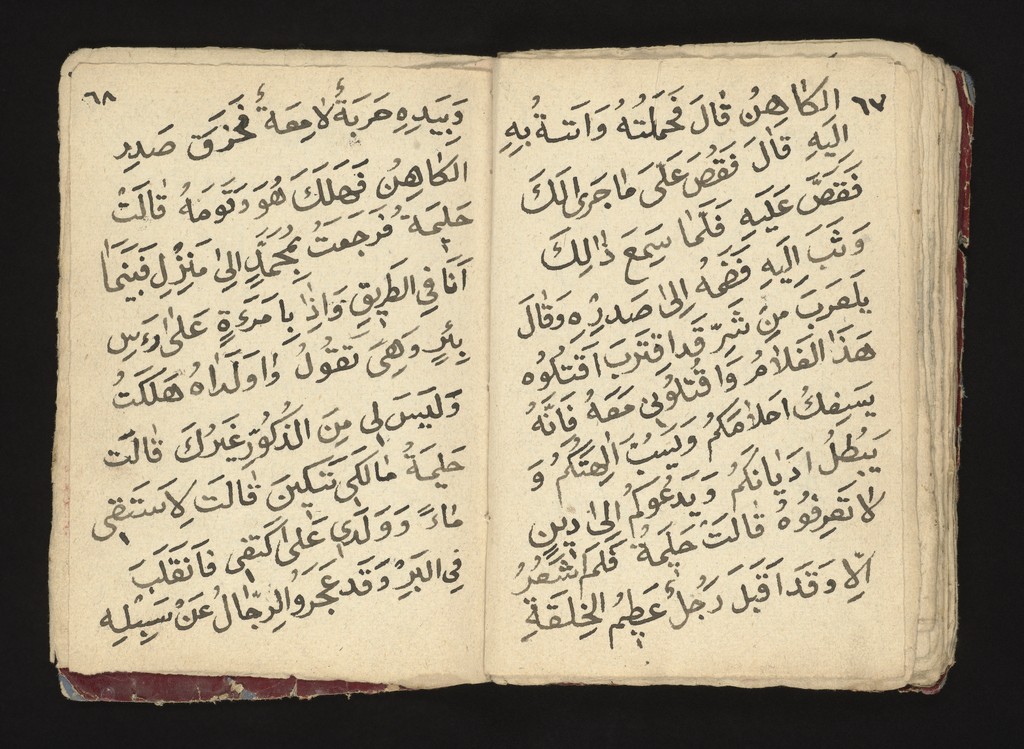 ٦٧
الكاهِنُ قالَ فَحَمَلتُهُ وَاتَتهُ بِهِ
اليَهِ قَالَ فَقُصَ عَلَى مَا جَرى الَكَ
فَقَصَّ عَلَيهِ فَلَمَا سَمِعَ ذالِكَ
وَثَبَ اليَهِ فَضَمُه اِلىَ صَدرِهِ وَقَالَ
يلعَرَبَ مِنَ شَرِّ قَدا قتَرَبَ اَقتُلُوُه
هَذَا الغَلَامُ وَاَقُتُلُونِى مَعَهُ فَانَّهُ
يَسَفِهُكُ احَلامَكُم وَيَسُبُ اَلِهتَكُمُ وَ
يَبُطلُ ادَيَانَكُم وَيَدَعُوكُم اِلىَ دِينٍ
لَا تَعَرِفُوُه قَالَت حَلِيَمةُ فَلَم اَشعُرُ
اِلّا وَقَد اَقبَلَ رَجُلُ عَظِمُ الخِلقَةِ
٦٨
وَبَيَدِهِ حَربَةُ لَامِعَةُ فَخَرَقَ صَدرِ
الكَاهِنُ فَهلَكَ هُوَ وَقَومَهُ قَالَتْ
حَلِيَمةُ فَرَجَعَتُ بِمُحَمَدٍ الِىَ مَنِزلِ فَبَيَنمَا
اَنَا فِي الطَرِيِقِ وَاِذَا بِامَرءَةٍ عَلىَ رَءَسِ
بِئرٍ وَهِىَ تَقوُلُ وَاوَلَدَاهُ هَلَكتُ
وَلَيَسَ لِي مِنَ الذَكُوُرِ غَيَرُكَ قَالَت
حَلِيمَةُ مَالَكِى تَبَكِينَ قَالَت لِاَستَقىِ
مَاءً وَوَلَدَىِ عَلىَ كَتفىِ فَانَقَلَبَ
فِي البَئرِ وَقَد عَجَزوُالرِجَالُ عَنْ سَبِيْلِهِ